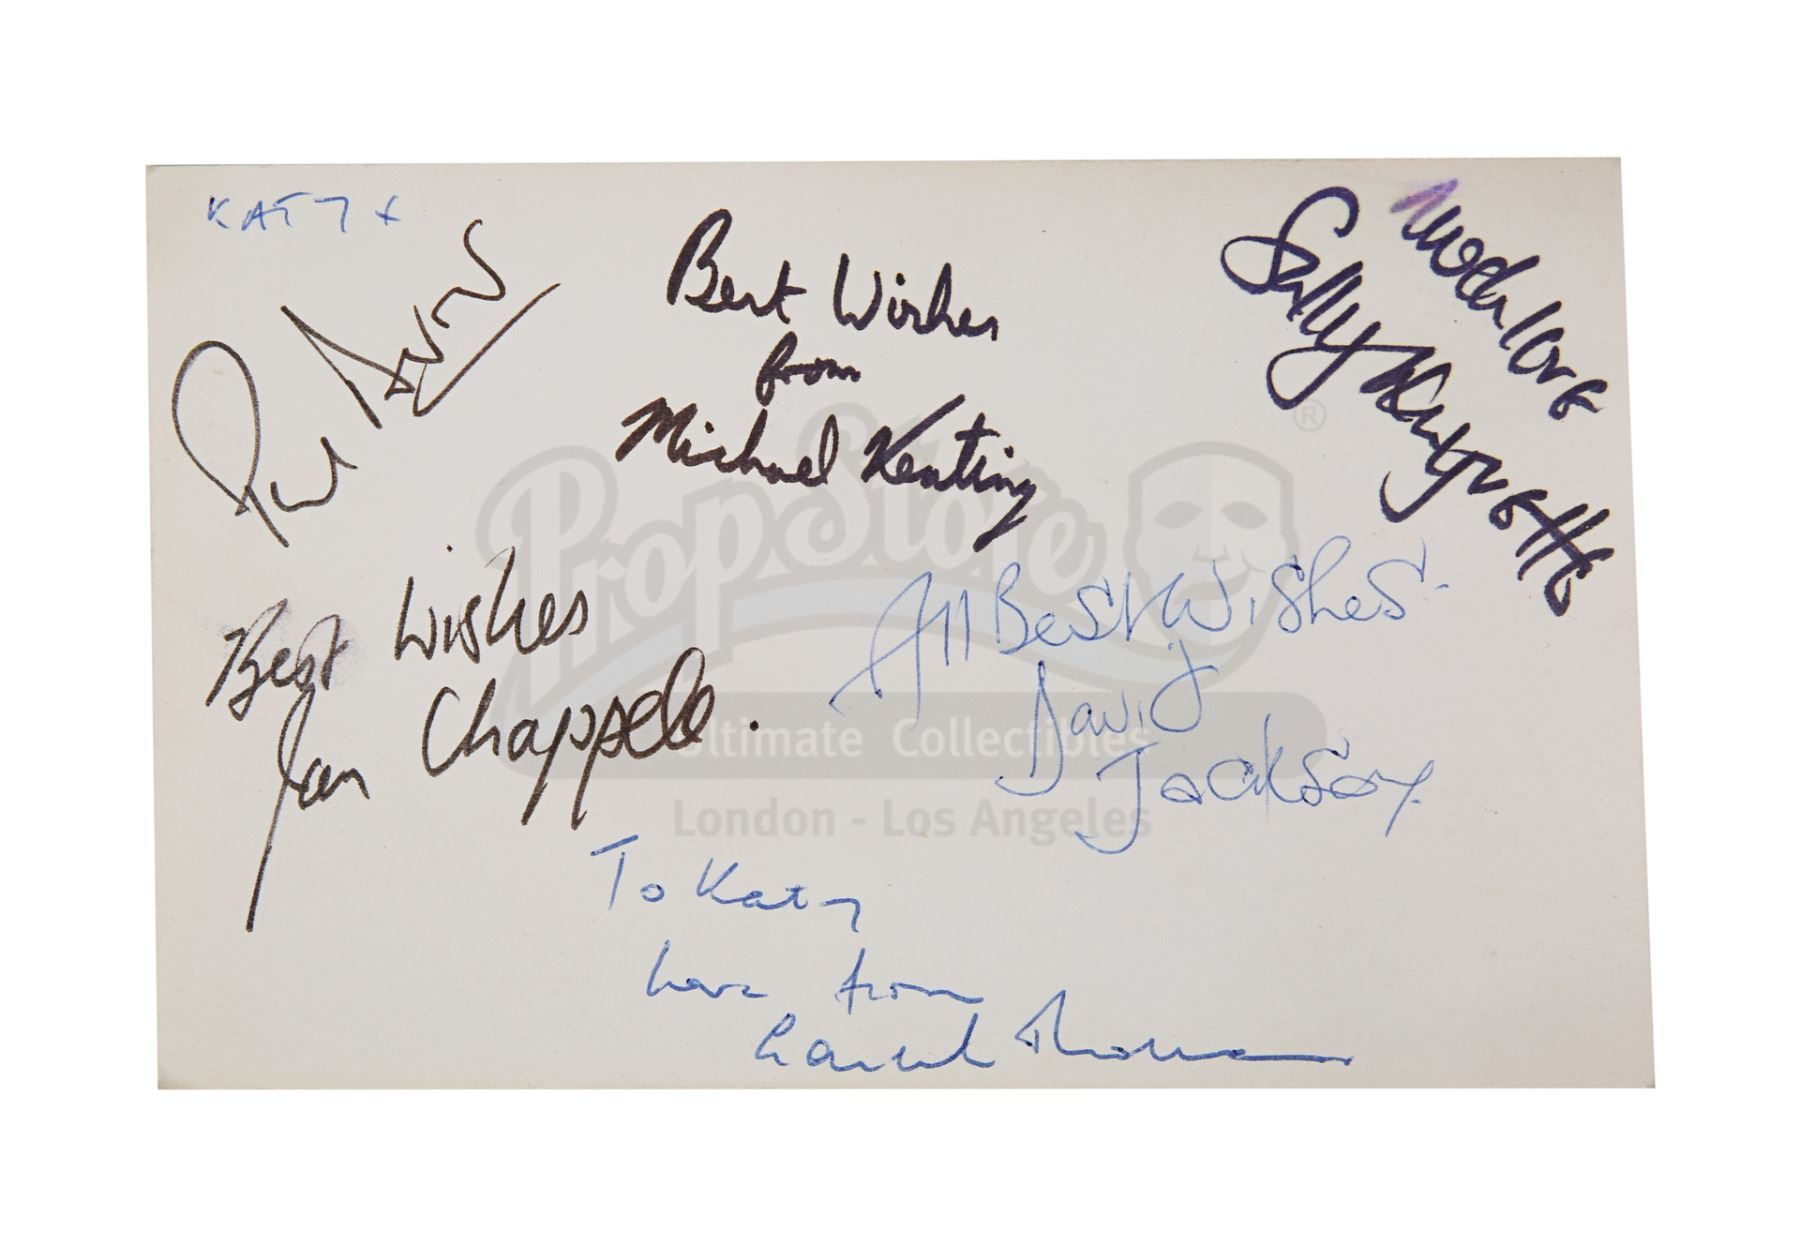 KATY x
Paul Darrow
Best Wishes
from
Michael Keating
much love
Sally Knyvette
Best Wishes
Jan Chappell.
All Best Wishes
David
Jackson
To Katy
love from
Gareth Thomas
PropStore
®
Ultimate Collectibles
London - Los Angeles